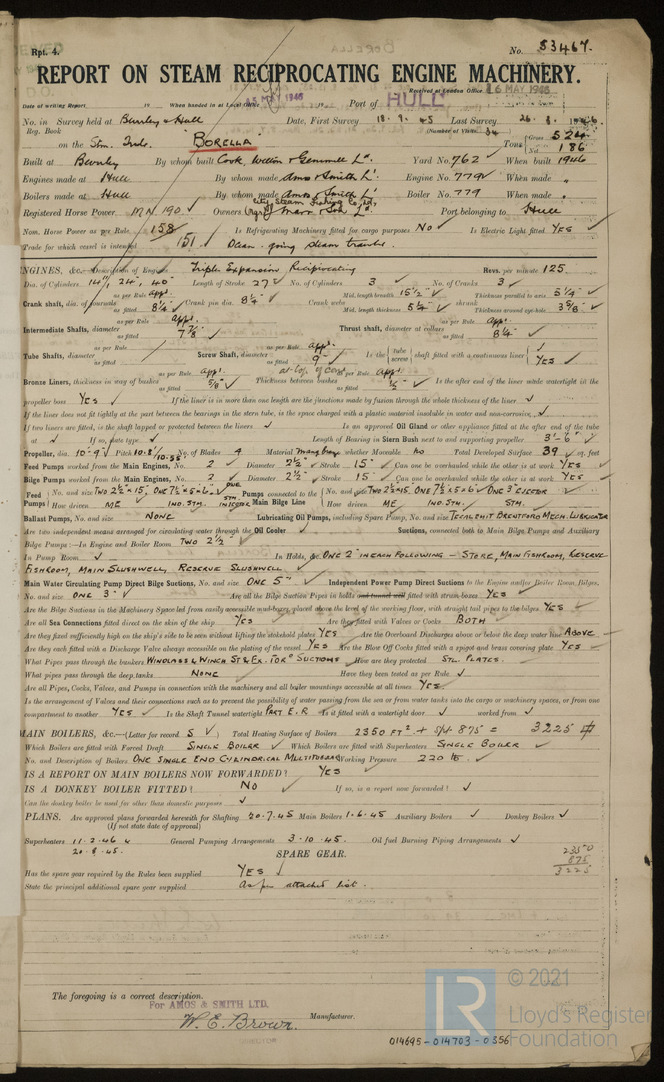 Rpt. 4. No. 53467.
REPORT ON STEAM RECIPROCATING ENGINE MACHINERY.
Received at London Office 16 MAY 1946
Date of writing Report 19 When handed in at Local Office 19 Port of HULL
No. in Survey held at Beverley & Hull Date, First Survey 18.9.45 Last Survey 26.3.1946
Reg. Book (Number of Visits 34
on the Stm. Trlr. "BORELLA" Tons Gross 520 Net 186
Built at Beverley By whom built Cook, Welton & Gemmell Ld. Yard No. 762 When built 1946
Engines made at Hull By whom made Amos & Smith Ld. Engine No. 779 When made "
Boilers made at Hull By whom made Amos & Smith Ld. Boiler No. 779 When made "
Registered Horse Power MN 190 Owners City Steam Fishing Co. Ld. Marr & Son Ld. Port belonging to Hull
Nom. Horse Power as per Rule 158 Is Refrigerating Machinery fitted for cargo purposes NO Is Electric Light fitted YES
151
Trade for which vessel is intended Ocean-going steam trawler.
ENGINES, &c.—Description of Engines Triple Expansion Reciprocating Revs. per minute 125
Dia. of Cylinders 14", 24", 40" Length of Stroke 27 No. of Cylinders 3 No. of Cranks 3
Crank shaft, dia. of journals as per Rule appd. as fitted 8¼ Crank pin dia. 8¼ Crank webs Mid. length breadth 15½" Mid. length thickness 5¼ shrunk Thickness parallel to axis 5¼ Thickness around eye-hole 3⅝
Intermediate Shafts, diameter as per Rule appd. as fitted 7⅞ Thrust shaft, diameter at collars as per Rule appd. as fitted 8¼
Tube Shafts, diameter as per Rule as fitted Screw Shaft, diameter as per Rule appd. as fitted 9 Is the tube screw shaft fitted with a continuous liner YES
Bronze Liners, thickness in way of bushes as per Rule appd. as fitted ⅝ Thickness between bushes as per Rule appd. as fitted ½ Is the after end of the liner made watertight in the
propeller boss YES If the liner is in more than one length are the junctions made by fusion through the whole thickness of the liner ✓
If the liner does not fit tightly at the part between the bearings in the stern tube, is the space charged with a plastic material insoluble in water and non-corrosive ✓
If two liners are fitted, is the shaft lapped or protected between the liners ✓ Is an approved Oil Gland or other appliance fitted at the after end of the tube
shaft ✓ If so, state type ✓ Length of Bearing in Stern Bush next to and supporting propeller 3'-6"
Propeller, dia. 10'-9 Pitch No. of Blades 4 Material whether Moveable NO Total Developed Surface 39 sq. feet
Feed Pumps worked from the Main Engines, No. 2 Diameter 2½" Stroke 15" Can one be overhauled while the other is at work YES
Bilge Pumps worked from the Main Engines, No. 2 Diameter 2½" Stroke 15" Can one be overhauled while the other is at work YES
Feed Pumps No. and size TWO 2½"x15", ONE 7½x5x6" ONE STM. INJECTOR How driven ME IND. STM. Pumps connected to the Main Bilge Line No. and size TWO 2½"x15, ONE 7½x5x6" ONE 3" EJECTOR How driven ME IND. STM. STM.
Ballast Pumps, No. and size NONE Lubricating Oil Pumps, including Spare Pump, No. and size TECALEMIT BRENTFORD MECH. LUBRICATOR
Are two independent means arranged for circulating water through the Oil Cooler ✓ Suctions, connected both to Main Bilge Pumps and Auxiliary
Bilge Pumps:—In Engine and Boiler Room TWO 2½"
In Pump Room ✓ In Holds, &c. ONE 2" IN EACH FOLLOWING – STORE, MAIN FISHROOM, RESERVE
FISHROOM, MAIN SLUSHWELL, RESERVE SLUSHWELL
Main Water Circulating Pump Direct Bilge Suctions, No. and size ONE 5" Independent Power Pump Direct Suctions to the Engine and/or Boiler Room Bilges,
No. and size ONE 3" Are all the Bilge Suction Pipes in holds and tunnel well fitted with strum-boxes YES
Are the Bilge Suctions in the Machinery Space led from easily accessible mud-boxes, placed above the level of the working floor, with straight tail pipes to the bilges YES
Are all Sea Connections fitted direct on the skin of the ship YES Are they fitted with Valves or Cocks BOTH
Are they fixed sufficiently high on the ship's side to be seen without lifting the stokehold plates YES Are the Overboard Discharges above or below the deep water line ABOVE
Are they each fitted with a Discharge Valve always accessible on the plating of the vessel YES Are the Blow Off Cocks fitted with a spigot and brass covering plate YES
What Pipes pass through the bunkers WINDLASS & WINCH ST & EX. FOR'D SUCTIONS How are they protected STL. PLATES.
What pipes pass through the deep tanks NONE Have they been tested as per Rule ✓
Are all Pipes, Cocks, Valves, and Pumps in connection with the machinery and all boiler mountings accessible at all times YES.
Is the arrangement of Valves and their connections such as to prevent the possibility of water passing from the sea or from water tanks into the cargo or machinery spaces, or from one
compartment to another YES Is the Shaft Tunnel watertight PART E.R. Is it fitted with a watertight door ✓ worked from ✓
MAIN BOILERS, &c.—(Letter for record S) Total Heating Surface of Boilers 2350 FT² + 875 = 3225
Which Boilers are fitted with Forced Draft SINGLE BOILER Which Boilers are fitted with Superheaters SINGLE BOILER
No. and Description of Boilers ONE SINGLE END CYLINDRICAL MULTITUBULAR Working Pressure 220 lb.
IS A REPORT ON MAIN BOILERS NOW FORWARDED? YES
IS A DONKEY BOILER FITTED? NO If so, is a report now forwarded? ✓
Can the donkey boiler be used for other than domestic purposes ✓
PLANS. Are approved plans forwarded herewith for Shafting 20.7.45 Main Boilers 1.6.45 Auxiliary Boilers ✓ Donkey Boilers ✓
(If not state date of approval)
Superheaters 11.2.46 & 20.8.45. General Pumping Arrangements 3.10.45. Oil fuel Burning Piping Arrangements ✓
SPARE GEAR.
2350
875
3225
Has the spare gear required by the Rules been supplied YES
State the principal additional spare gear supplied as per attached list.
The foregoing is a correct description.
For AMOS & SMITH LTD.
W. E. Brown. Manufacturer.
014695-014703-0356
© 2021
LR
Lloyd's Register
Foundation